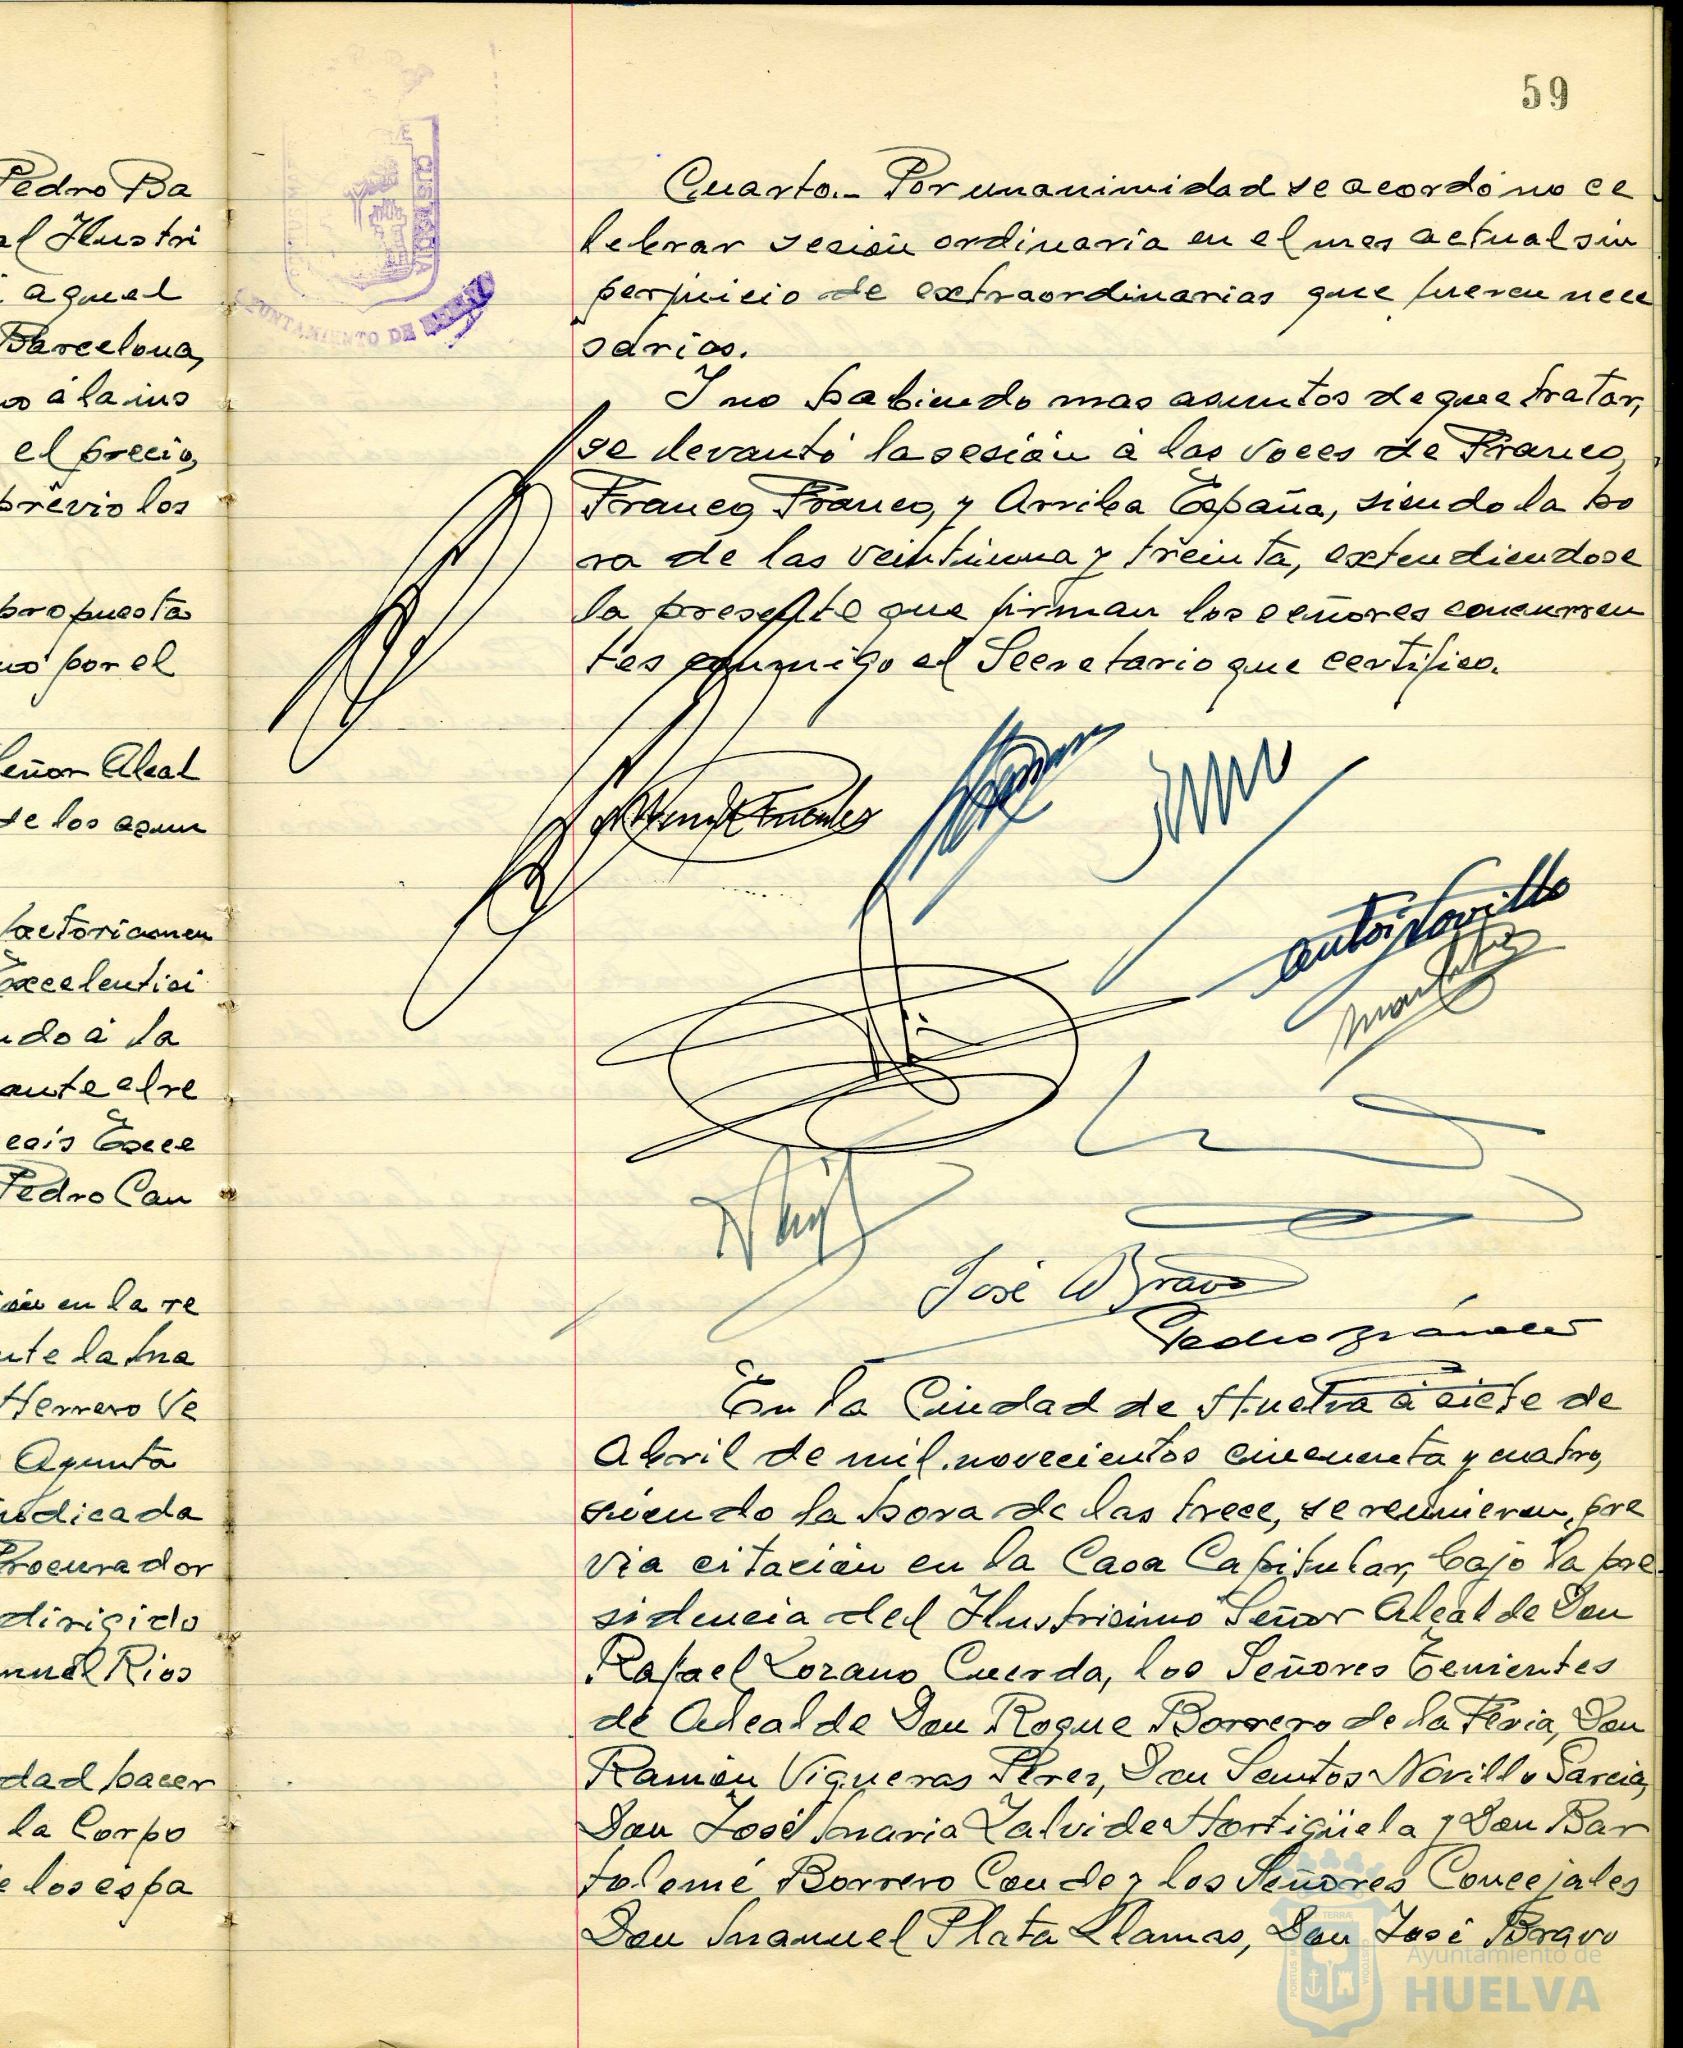 Pedro Ba
al Ilustri
aquel
Barcelona,
á la ins
el precio,
previo los
propuesta
por el
Señor Alcal
de los asun
factoriamen
Excelentísi
ndo á la
ante el re
Exce
Pedro Can
en la re
nte la Ma
Herrero Ve
Ayunta
indicada
Procurador
dirigido
nuel Rios
dad hacer
la Corpo
e los espa
CUSTODIA
AYUNTAMIENTO DE HUELVA
59
Cuarto.- Por unanimidad se acordó no ce
lebrar sesión ordinaria en el mes actual sin
perjuicio de extraordinarias que fueren nece
sarias.
Y no habiendo mas asuntos de que tratar,
se levantó la sesión á las voces de Franco,
Franco, Franco, y Arriba España, siendo la ho
ra de las veintiuna y treinta, extendiendose
la presente que firman los señores concurren
tes conmigo el Secretario que certifico.
José Bravo
En la Ciudad de Huelva á siete de
Abril de mil novecientos cincuenta y cuatro,
siendo la hora de las trece, se reunieron, pre
via citación en la Casa Capitular, bajo la pre
sidencia del Ilustrisimo Señor Alcalde Don
Rafael Lozano Cuerda, los Señores Tenientes
de Alcalde Don Roque Borrero de la Feria, Don
Ramón Vigueras Pérez, Don Santos Novillo Garcia,
Don José Maria Zalvide Hortigüela y Don Bar
tolomé Borrero Conde y los Señores Concejales
Don Manuel Plata Llamas, Don José Bravo
Ayuntamiento de
HUELVA